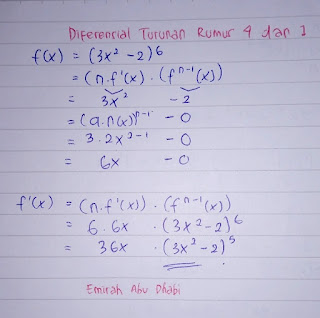 Diferensial Turunan Rumur 4 dan 1
f(x) = (3x² - 2)⁶
= (n.f'(x) . (fⁿ⁻¹(x))
= 3x² - 2
= (a.n(x)ⁿ⁻¹ - 0
= 3.2x²⁻¹ - 0
= 6x - 0
f'(x) = (n.f'(x)) . (fⁿ⁻¹(x))
= 6.6x . (3x² - 2)⁶
= 36x . (3x² - 2)⁵
Emirah Abu Dhabi